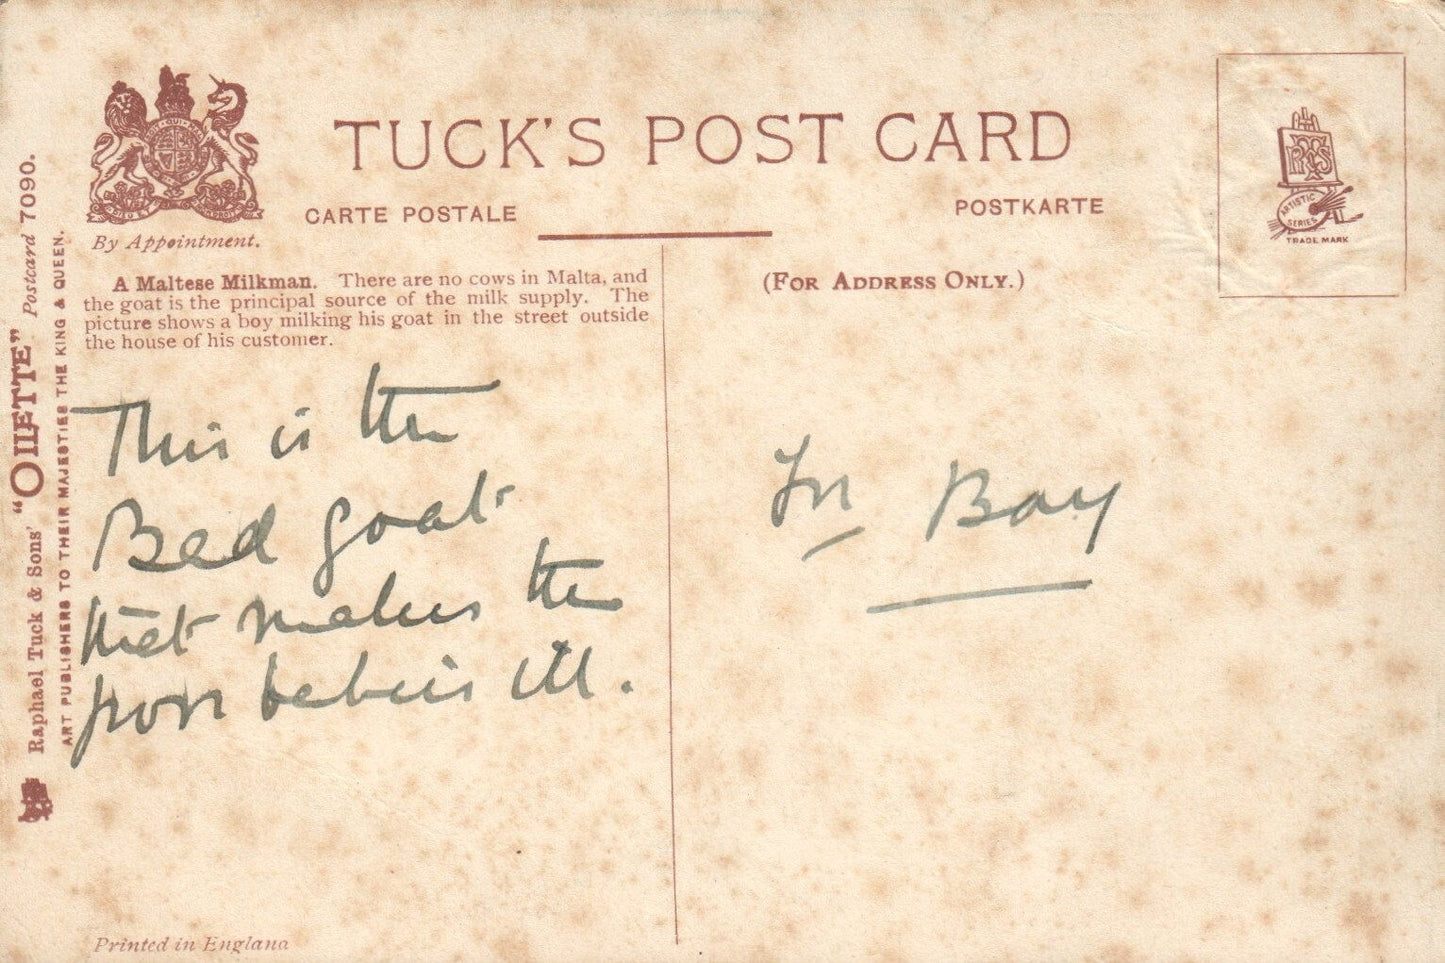 TUCK'S POST CARD
CARTE POSTALE
POSTKARTE
By Appointment.
A Maltese Milkman. There are no cows in Malta, and
the goat is the principal source of the milk supply. The
picture shows a boy milking his goat in the street outside
the house of his customer.
(FOR ADDRESS ONLY.)
ARTISTIC
SERIES
TRADE MARK
This is the
Bad goat
that makes the
poor babies ill.
Bay
Raphael Tuck & Sons' "OILETTE" Postcard 7090.
ART PUBLISHERS TO THEIR MAJESTIES THE KING & QUEEN.
Printed in England